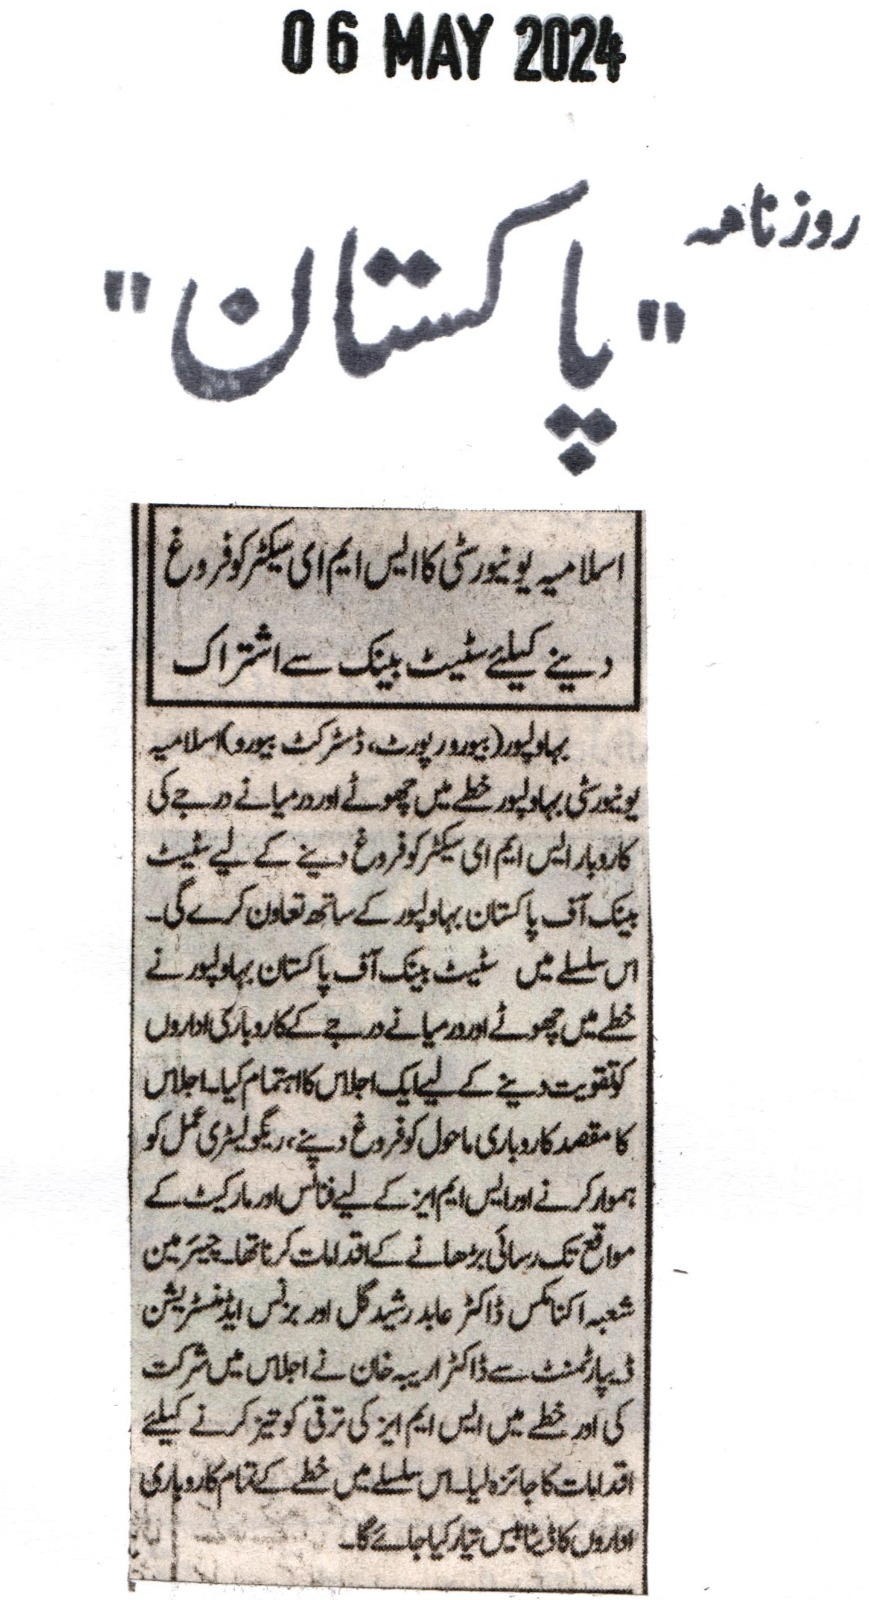 06 MAY 2024
روزنامہ
"پاکستان"
اسلامیہ یونیورسٹی کا ایس ایم ای سیکٹر کو فروغ
دینے کیلئے سٹیٹ بینک سے اشتراک
بہاولپور(بیورورپورٹ، ڈسٹرکٹ بیورو)اسلامیہ
یونیورسٹی بہاولپور خطے میں چھوٹے اور درمیانے درجے کی
کاروبار ایس ایم ای سیکٹر کو فروغ دینے کے لیے سٹیٹ
بینک آف پاکستان بہاولپور کے ساتھ تعاون کرے گی۔
اس سلسلے میں سٹیٹ بینک آف پاکستان بہاولپور نے
خطے میں چھوٹے اور درمیانے درجے کے کاروباری اداروں
کو تقویت دینے کے لیے ایک اجلاس کا اہتمام کیا۔ اجلاس
کا مقصد کاروباری ماحول کو فروغ دینے، ریگولیٹری عمل کو
ہموار کرنے اور ایس ایم ایز کے لیے فنانس اور مارکیٹ کے
مواقع تک رسائی بڑھانے کے اقدامات کرنا تھا۔ چیئرمین
شعبہ اکنامکس ڈاکٹر عابد رشید گل اور بزنس ایڈمنسٹریشن
ڈیپارٹمنٹ سے ڈاکٹر اریبہ خان نے اجلاس میں شرکت
کی اور خطے میں ایس ایم ایز کی ترقی کو تیز کرنے کیلئے
اقدامات کا جائزہ لیا۔ اس سلسلے میں خطے کے تمام کاروباری
اداروں کا ڈیٹا بیس تیار کیا جائے گا۔